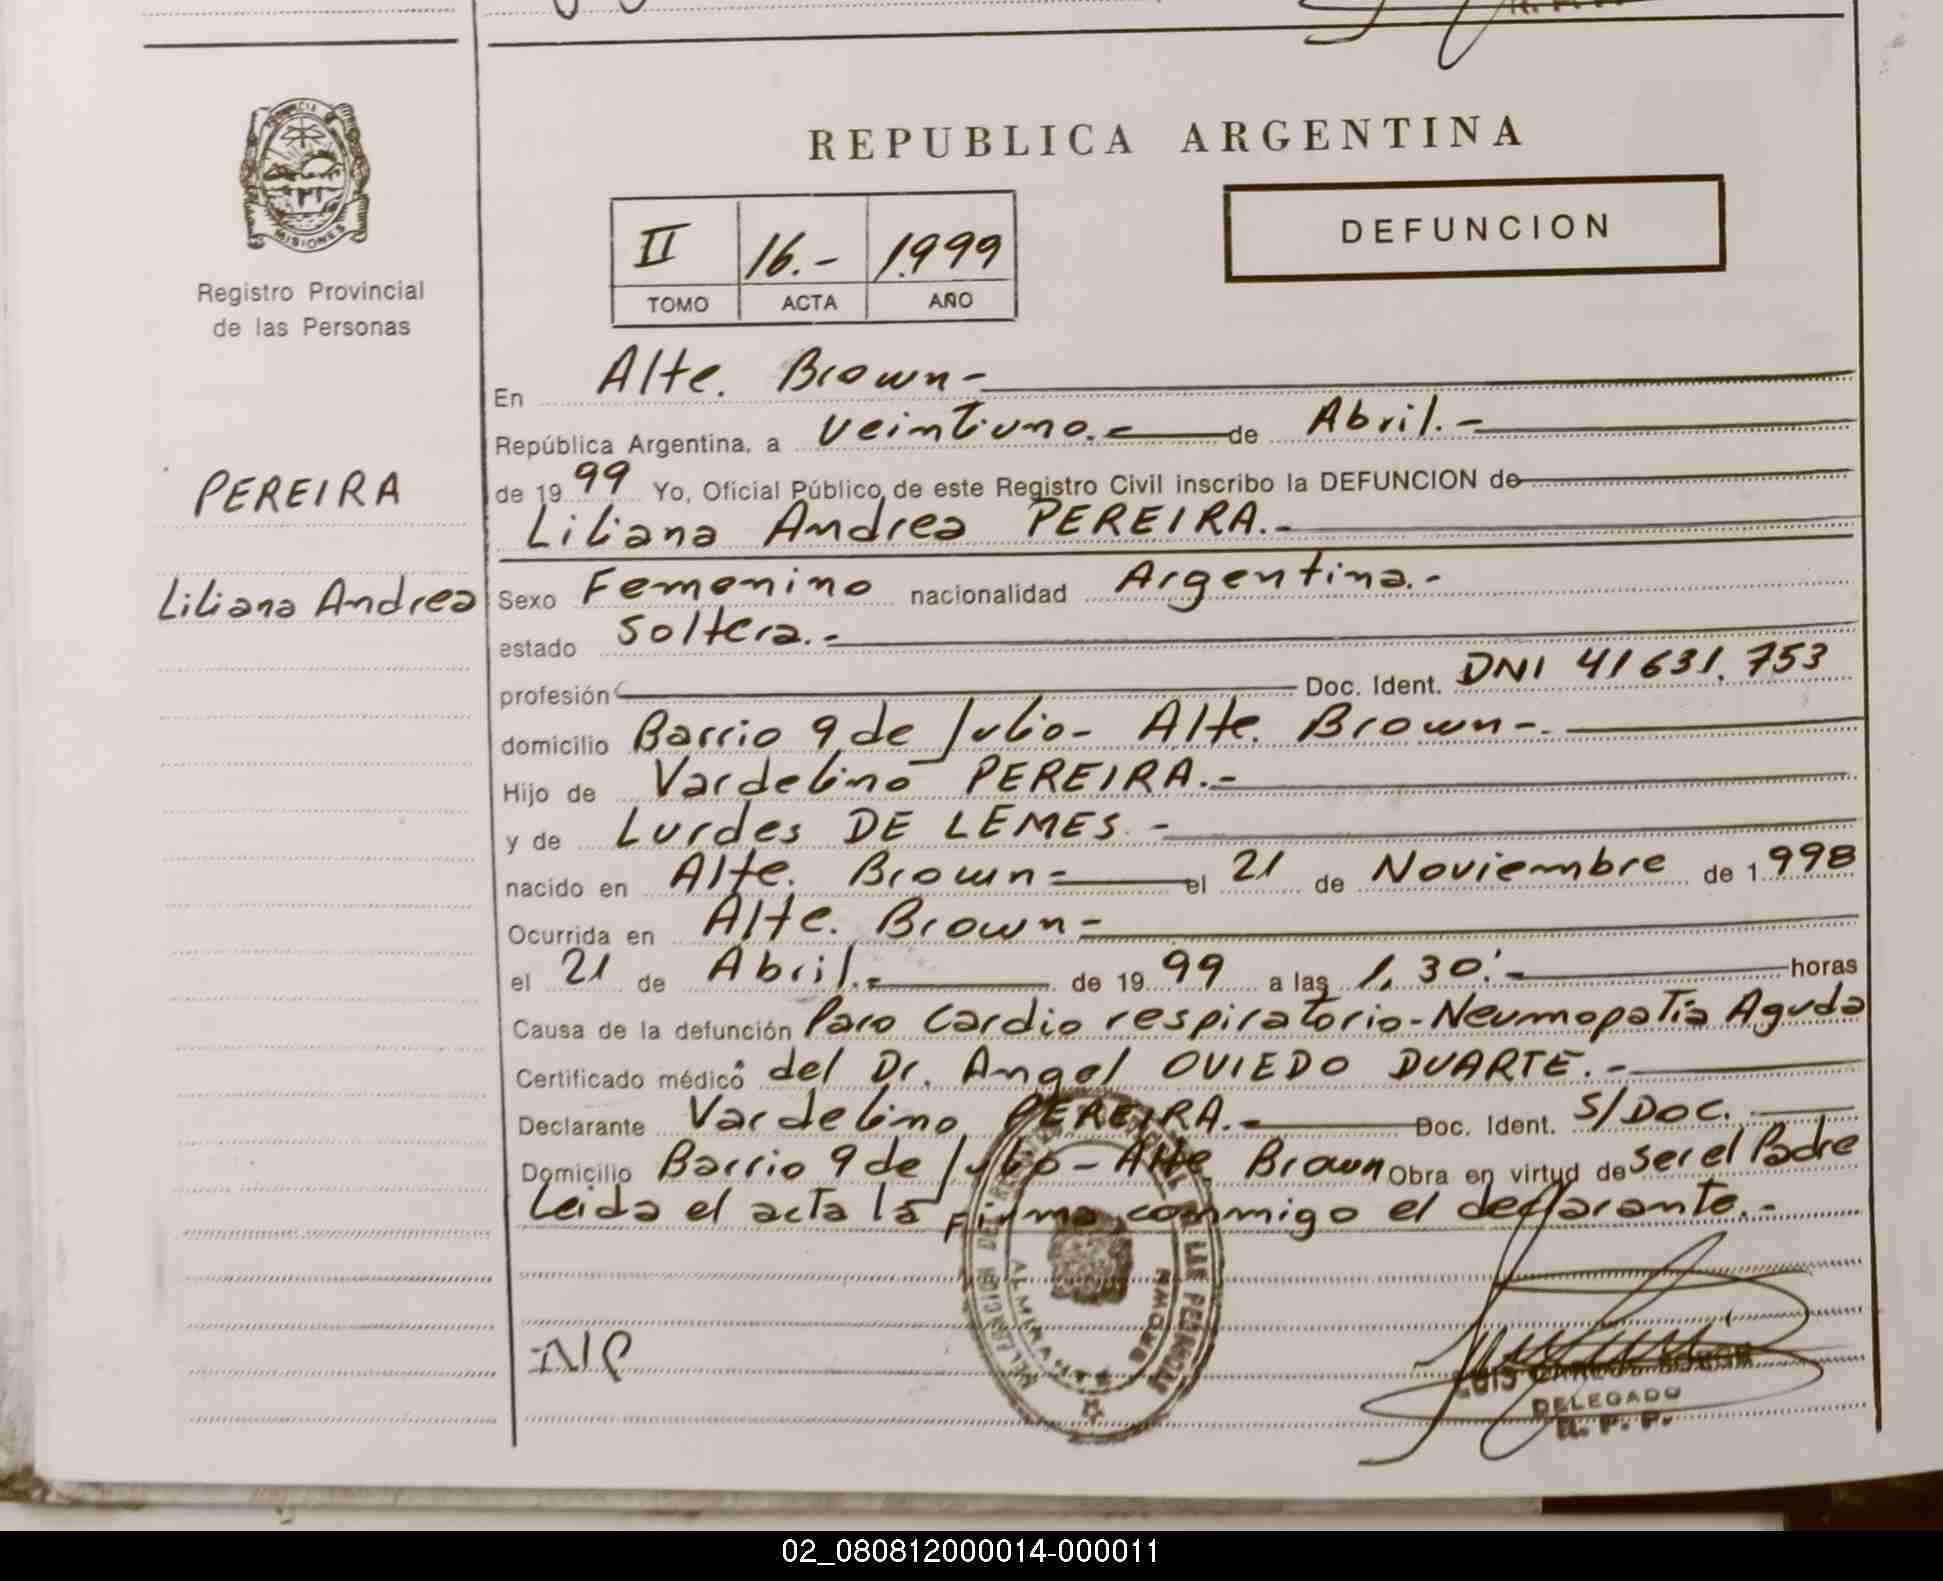 REPUBLICA ARGENTINA
PROVINCIA
MISIONES
Registro Provincial
de las Personas
II 16.- 1.999
TOMO ACTA AÑO
DEFUNCION
PEREIRA
Liliana Andrea
En Alte. Brown-
República Argentina, a veintiuno.- de Abril.-
de 1999 Yo, Oficial Público de este Registro Civil inscribo la DEFUNCION de
Liliana Andrea PEREIRA.-
Sexo Femenino nacionalidad Argentina.-
estado Soltera.-
profesión Doc. Ident. DNI 41631.753
domicilio Barrio 9 de Julio- Alte. Brown-.
Hijo de Vardelino PEREIRA.-
y de Lurdes DE LEMES.-
nacido en Alte. Brown- el 21 de Noviembre de 1.998
Ocurrida en Alte. Brown-
el 21 de Abril.- de 1999 a las 1,30.- horas
Causa de la defunción Paro Cardio respiratorio-Neumopatía Aguda
Certificado médico del Dr. Angel OVIEDO DUARTE.-
Declarante Vardelino PEREIRA.- Doc. Ident. S/DOC.
Domicilio Barrio 9 de Julio- Alte Brown Obra en virtud de ser el Padre
Leida el acta la Firma conmigo el declarante.-
DELEGADO
R. P. P.
02_080812000014-000011